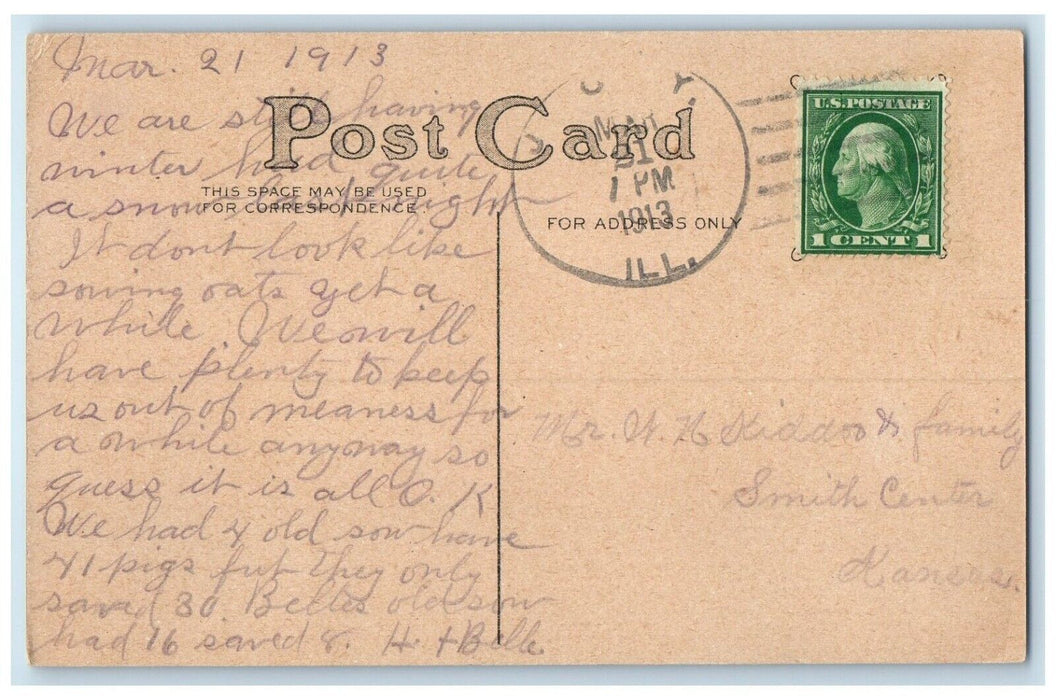 Mar. 21 1913
We are still having
winter had quite
a snow last night
It dont look like
sowing oats yet a
while. We will
have plenty to keep
us out of meaness for
a while anyway so
guess it is all O. K
We had 4 old sow have
41 pigs but they only
saved 30 Belles old sow
had 16 saved 8. H. & Belle
Post Card
THIS SPACE MAY BE USED
FOR CORRESPONDENCE.
FOR ADDRESS ONLY
MAR
21
1 PM
1913
ILL.
U.S. POSTAGE
1 CENT 1
Mr. Kiddoo & family
Smith Center
Kansas.